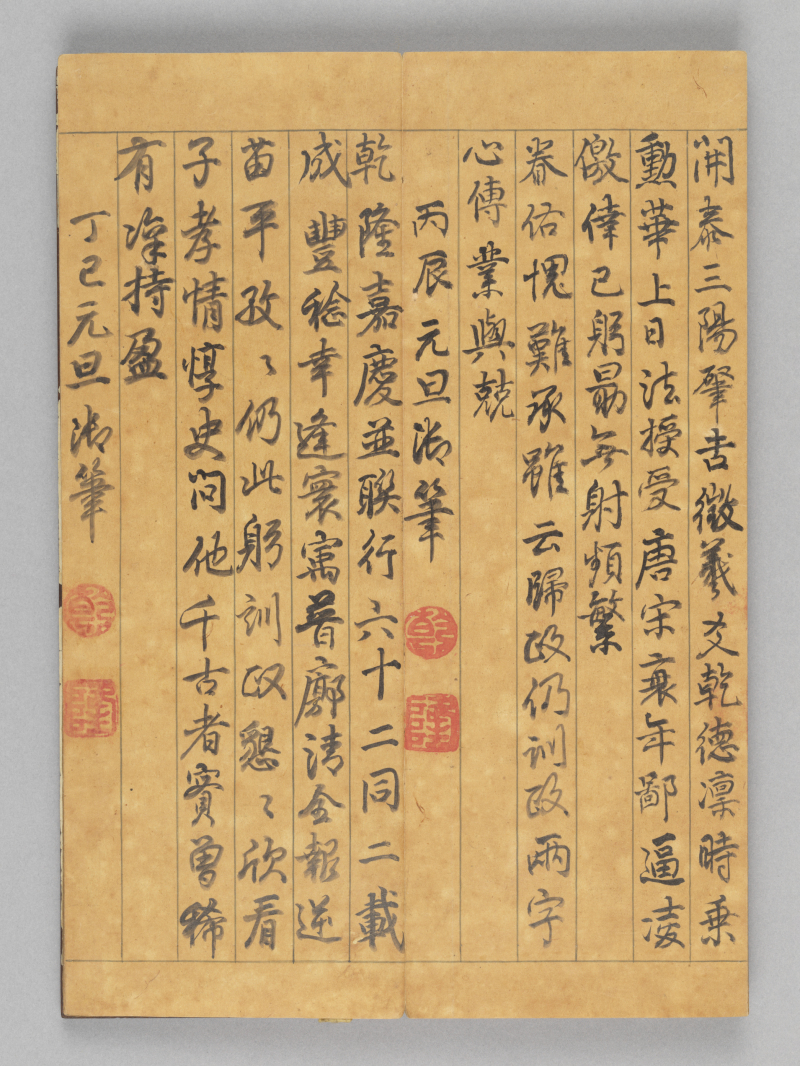 開泰三陽肇吉徵羲爻乾德凜時乘
勳華上日法授受唐宋衰年鄙逼凌
儌倖已躬勗無射頻繁
眷佑愧難承雖云歸政仍訓政兩字
心傳業與兢
丙辰元旦御筆
乾隆嘉慶並聯行六十二同二載
成豐稔幸逢寰寓普廓清全報逆
苗平孜〻仍此躬訓政懇〻欣看
子孝情惇史問他千古者實曾稀
有凜持盈
丁巳元旦御筆